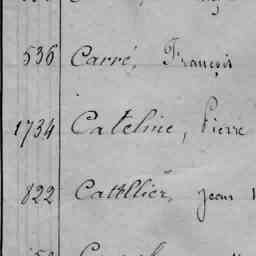 536 Carré, François
1734 Cateline, Pierre
822 Cattllier, Jean